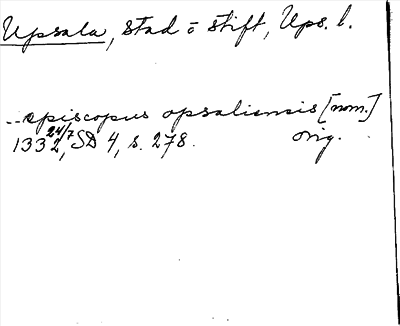 Upsala, stad o stift, Ups. l.
..episcopus opsaliensis [nom.]
1332 24/7, SD 4, s. 278. orig.